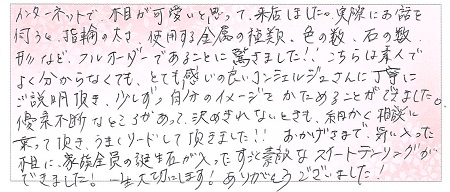 インターネットで、木目が可愛いと思って、来店しました。実際にお話を
伺うと、指輪の太さ、使用する金属の種類、色の数、石の数
形など、フルオーダーであることに驚きました!!こちらは素人で
よく分からなくても、とても感じの良いコンシェルジュさんに丁寧に
ご説明頂き、少しずつ自分のイメージをかためることができました。
優柔不断なところがあって、決めきれないときも、細かく相談に
乗って頂き、うまくリードして頂きました!!おかげさまで、気に入った
木目に、家族全員の誕生石が入ったすごく素敵なスイートテンリングが
できました!一生大切にします!ありがとうございました!